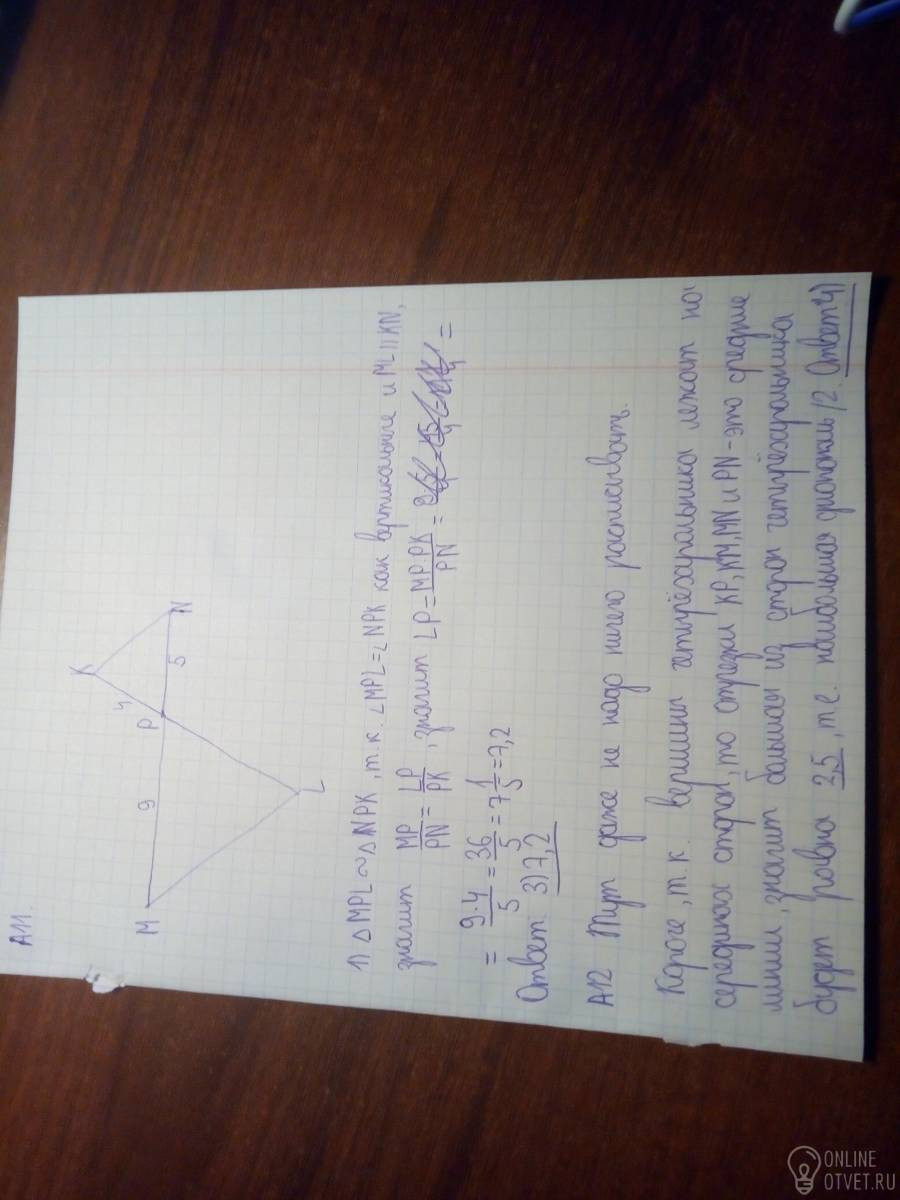 А11.
К
4
9
Р
5
N
М
L
1) △MPL ~ △NPK, т.к. ∠MPL=∠NPK как вертикальные и ML II KN,
значит MP/PN = LP/PK, значит LP = MP·PK/PN =
= 9·4/5 = 36/5 = 7 1/5 = 7,2
Ответ: 3) 7,2
А12 Тут даже не надо ничего расписывать.
Короче, т.к. вершины четырёхугольника лежат на
серединах сторон, то отрезки KP, KM, MN и PN - это средние
линии, значит большая из сторон четырёхугольника
будет равна 3,5, т.е. наибольшая диагональ/2. Ответ 4)
ONLINE
OTVET.RU